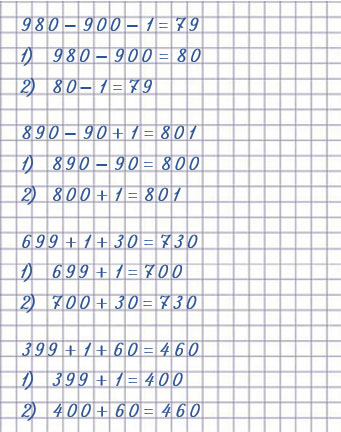 980 – 900 – 1 = 79
1) 980 – 900 = 80
2) 80 – 1 = 79
890 – 90 + 1 = 801
1) 890 – 90 = 800
2) 800 + 1 = 801
699 + 1 + 30 = 730
1) 699 + 1 = 700
2) 700 + 30 = 730
399 + 1 + 60 = 460
1) 399 + 1 = 400
2) 400 + 60 = 460